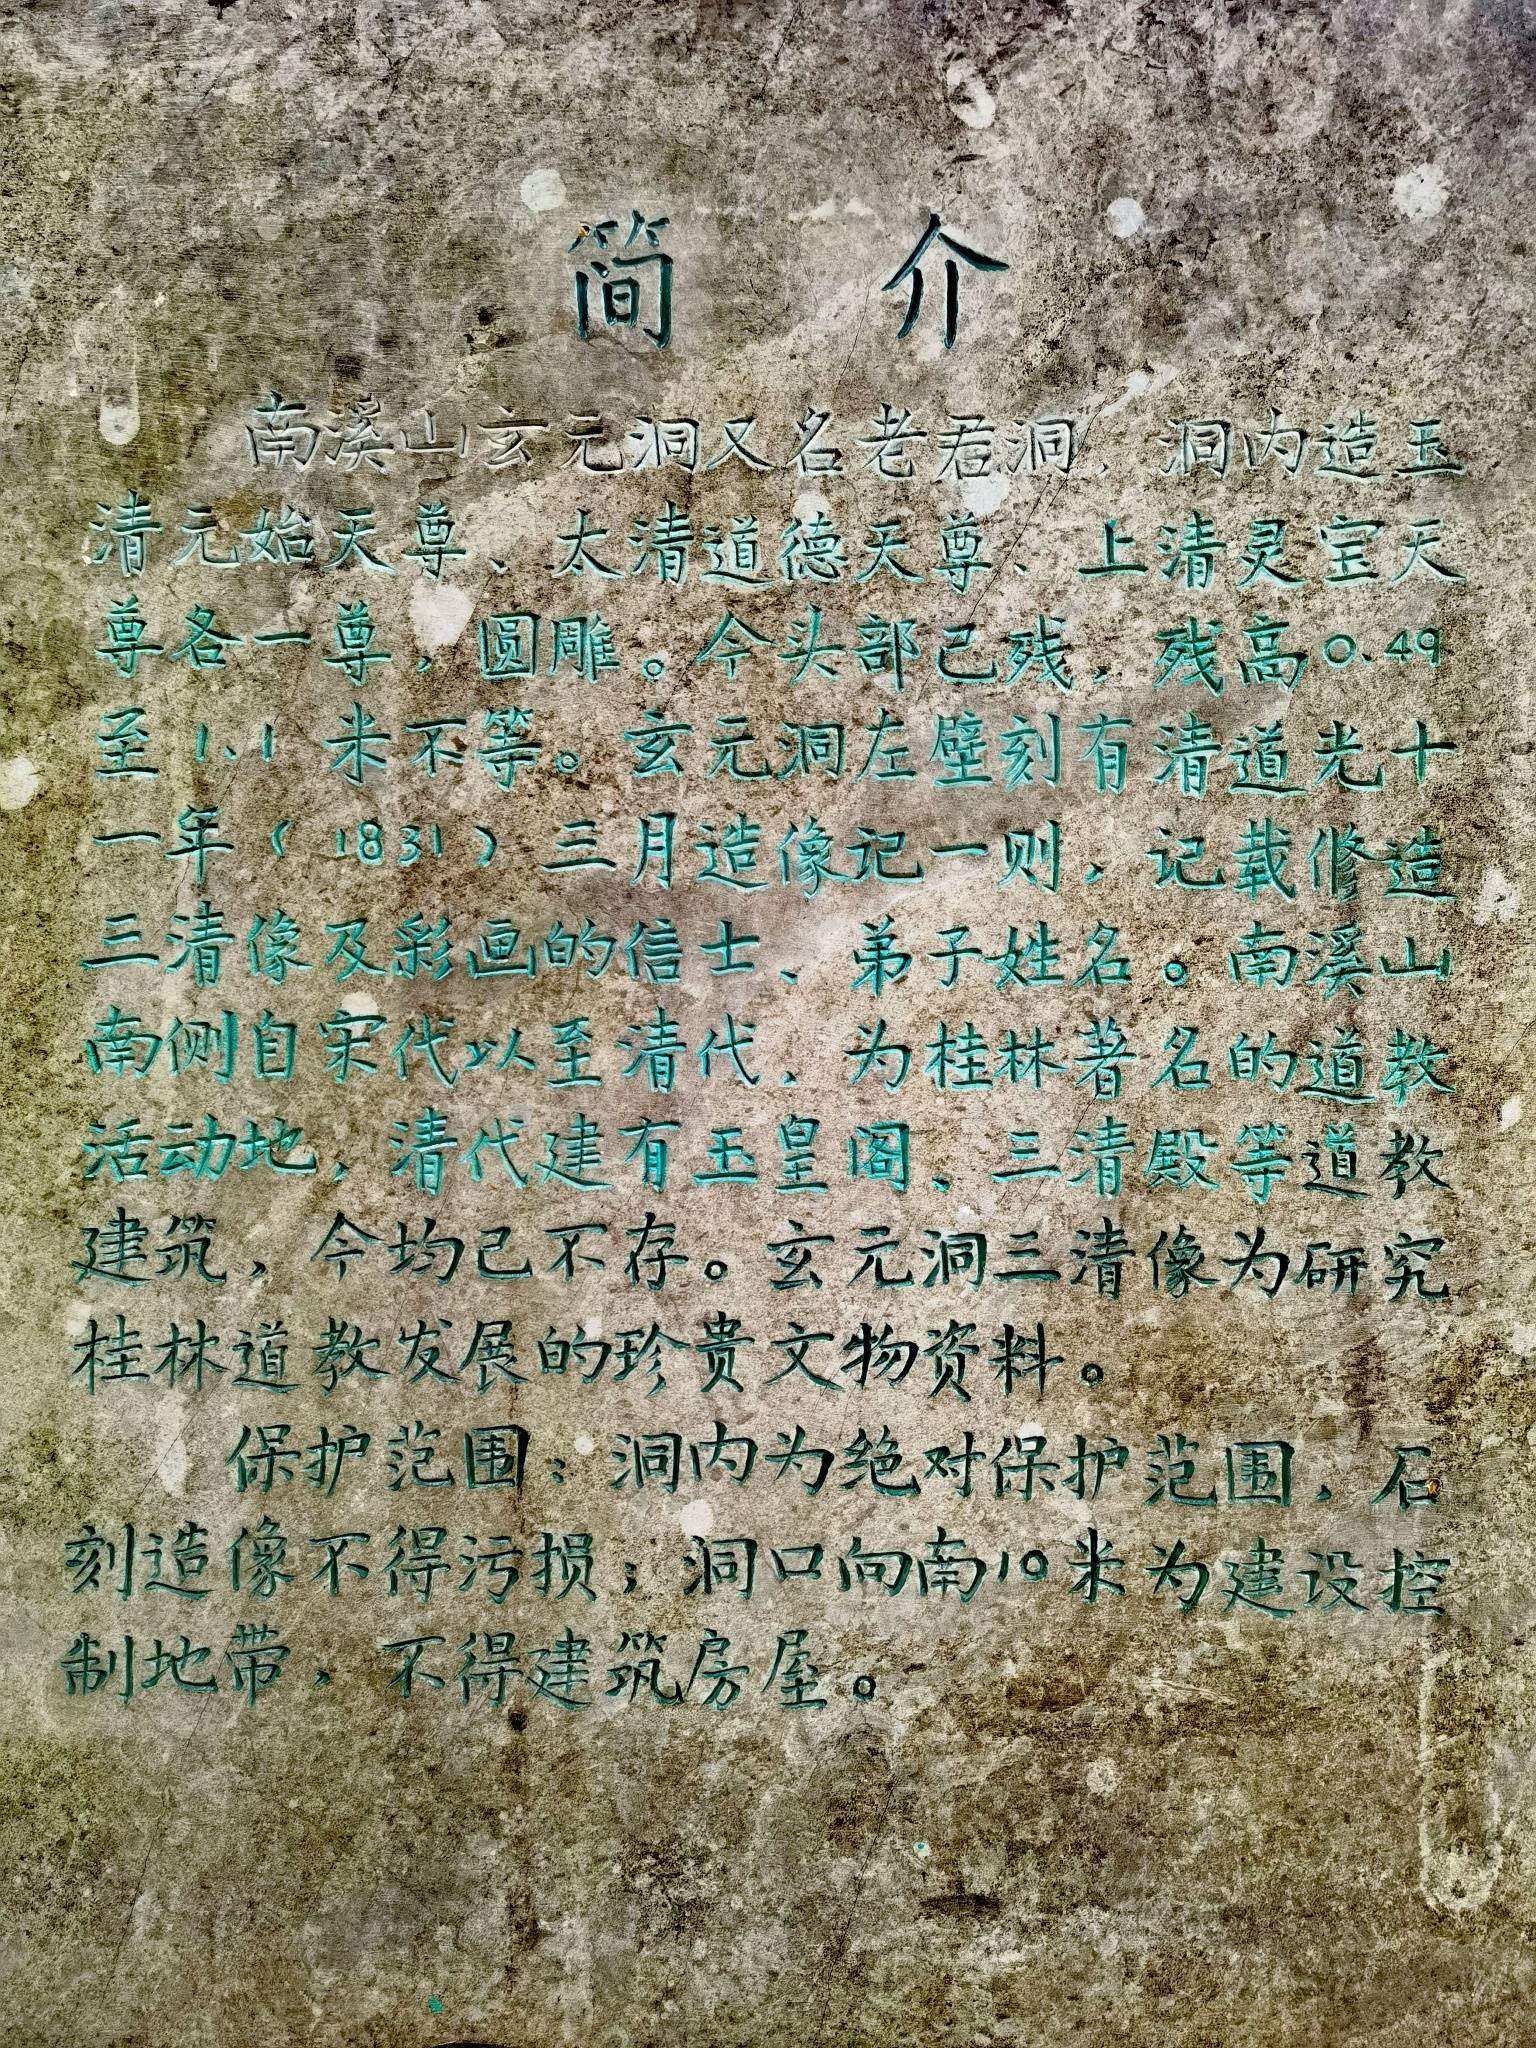 简介
南溪山玄元洞又名老君洞，洞内造玉
清元始天尊、太清道德天尊、上清灵宝天
尊各一尊，圆雕。今头部已残，残高0.49
至1.1米不等。玄元洞左壁刻有清道光十
一年(1831)三月造像记一则，记载修造
三清像及彩画的信士、弟子姓名。南溪山
南侧自宋代以至清代，为桂林著名的道教
活动地，清代建有玉皇阁、三清殿等道教
建筑，今均已不存。玄元洞三清像为研究
桂林道教发展的珍贵文物资料。
保护范围：洞内为绝对保护范围，石
刻造像不得污损；洞口向南10米为建设控
制地带，不得建筑房屋。